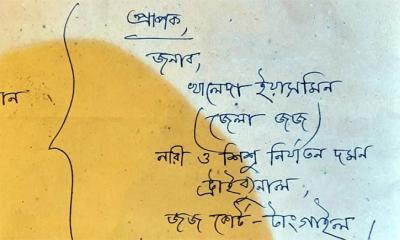 প্রাপক,
জনাব,
খালেদা ইয়াসমিন
(জেলা জজ)
নারী ও শিশু নির্যাতন দমন
ট্রাইব্যুনাল,
জজ কোর্ট - টাংগাইল।